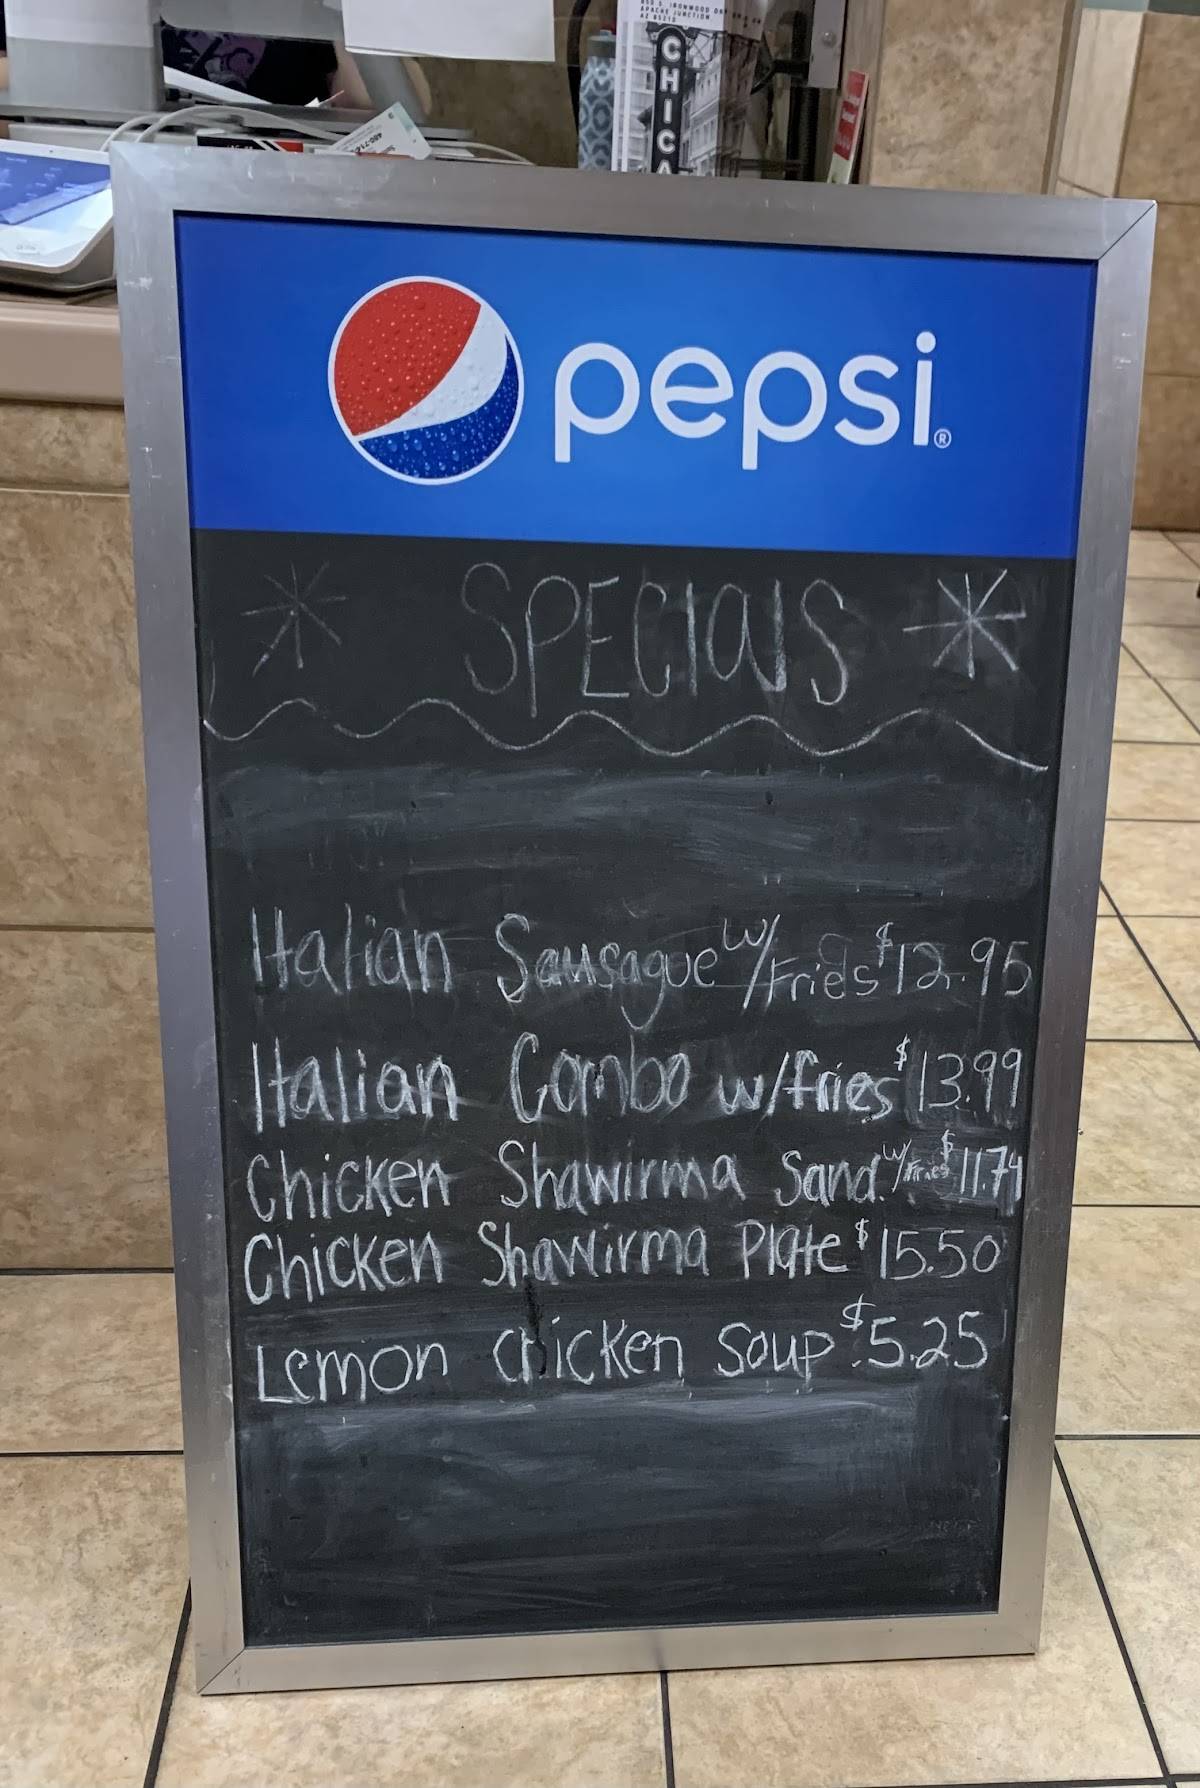 850 S. IRONWOOD
APACHE JUNCTION
AZ 85120
CHICA
pepsi®
SPECIALS
Italian Sausague w/Fries $12.95
Italian Combo w/fries $13.99
Chicken Shawirma Sand. w/Fries $11.74
Chicken Shawirma Plate $15.50
Lemon chicken soup $5.25